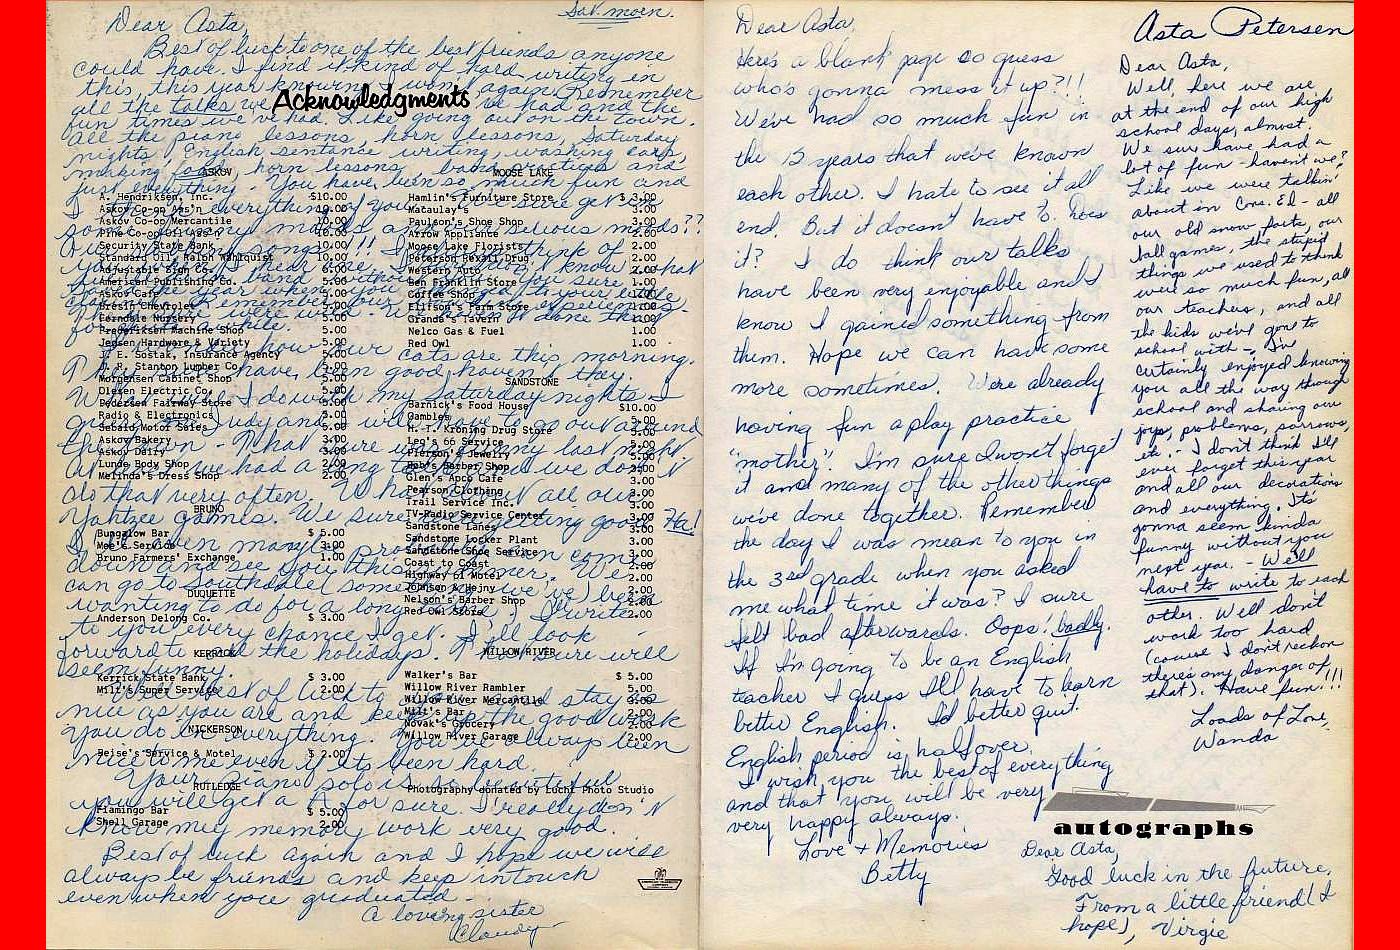 Sat. morn.
Dear Asta,
Best of luck to one of the best friends anyone
could have. I find it kind of hard writing in
this, this year knowing I won't again. Remember
all the talks we had and the
fun times we've had. Like going out on the town.
all the piano lessons, horn lessons, Saturday
nights, English sentance writing, washing cars,
making food, horn lesson, band practices and
just everything. You have been so much fun and
Acknowledgments
ASKOV
A. Hendriksen, Inc. $10.00
Askov Co-op Ass'n 10.00
Askov Co-op Mercantile 10.00
Pine Co-op Oil Ass'n 10.00
Security State Bank 10.00
Standard Oil, Ralph Wahlquist 10.00
Adjustable Sign Co. 6.00
American Publishing Co. 5.00
Askov Cafe 5.00
Bresil Chevrolet 5.00
Ferndale Nursery 5.00
Frederiksen Machine Shop 5.00
Jensen Hardware & Variety 5.00
J. E. Sostak, Insurance Agency 5.00
D. R. Stanton Lumber Co. 5.00
Morgensen Cabinet Shop 5.00
Olesen Electric Co. 5.00
Pedersen Fairway Store 5.00
Radio & Electronics 5.00
Sebald Motor Sales 5.00
Askov Bakery 3.00
Askov Dairy 3.00
Lunde Body Shop 2.00
Melinda's Dress Shop 2.00
BRUNO
Bungalow Bar $ 5.00
Moe's Service 3.00
Bruno Farmers' Exchange 1.00
DUQUETTE
Anderson Delong Co. $ 3.00
KERRICK
Kerrick State Bank $ 3.00
Milt's Super Service 2.00
NICKERSON
Beise's Service & Motel $ 2.00
RUTLEDGE
Flamingo Bar $ 5.00
Shell Garage 2.00
MOOSE LAKE
Hamlin's Furniture Store $ 3.00
Mataulay's 3.00
Paulson's Shoe Shop 3.00
Arrow Appliance 2.00
Moose Lake Florists 2.00
Peterson Rexall Drug 2.00
Western Auto 2.00
Ben Franklin Store 1.00
Coffee Shop 1.00
Ellison's Farm Store 1.00
Grande's Tavern 1.00
Nelco Gas & Fuel 1.00
Red Owl 1.00
SANDSTONE
Barnick's Food House $10.00
Gambles 5.00
H. T. Kroning Drug Store 5.00
Leg's 66 Service 5.00
Pierson's Jewelry 5.00
Bob's Barber Shop 3.00
Glen's Apco Cafe 3.00
Pearson Clothing 3.00
Trail Service Inc. 3.00
TV-Radio Service Center 3.00
Sandstone Lanes 3.00
Sandstone Locker Plant 3.00
Sandstone Shoe Service 3.00
Coast to Coast 2.00
Highway 61 Motel 2.00
Johnson & Hejny 2.00
Nelson's Barber Shop 2.00
Red Owl Store 2.00
WILLOW RIVER
Walker's Bar $ 5.00
Willow River Rambler 5.00
Willow River Mercantile 3.00
Milt's Bar 2.00
Novak's Grocery 2.00
Willow River Garage 2.00
Photography donated by Luchi Photo Studio
how our cats are this morning.
They have been good, haven't they.
What will I do with my Saturday nights
do that very often. all our
Yahtzee games. We sure getting good Ha!
can go to Southdale
wanting to do for a long I'll write
to you every chance I get. I'll look
forward to all the holidays. That sure will
seem funny.
best of luck to and stay as
nice as you are and keep up the good work
you do in everything. You've always been
nice to me even if it's been hard.
Your piano solo is so beautiful
you will get a A for sure. I really don't
know my memory work very good.
Best of luck again and I hope we will
always be friends and keep in touch
even when you graduated.
A loving sister
Claudy
Dear Asta,
Here's a blank page so guess
who's gonna mess it up?!!
We've had so much fun in
the 13 years that we've known
each other. I hate to see it all
end. But it doesn't have to. Does
it? I do think our talks
have been very enjoyable and I
know I gained something from
them. Hope we can have some
more sometimes. We're already
having fun a play practice
"mother". I'm sure I won't forget
it and many of the other things
we've done together. Remember
the day I was mean to you in
the 3rd grade when you asked
me what time it was? I sure
felt bad afterwards. Oops! badly.
If I'm going to be an English
teacher I guess I'll have to learn
better English. I'd better quit.
English period is half over.
I wish you the best of everything
and that you will be very
very happy always.
Love + Memories
Betty
Asta Petersen
Dear Asta,
Well, here we are
at the end of our high
school days, almost.
We sure have had a
lot of fun - haven't we?
Like we were talkin'
about in Cons. Ed - all
our old snow forts, our
ball games, the stupid
things we used to think
were so much fun, all
our teachers, and all
the kids we've gone to
school with - I've
certainly enjoyed knowing
you all the way through
school and sharing our
joys, problems, sorrows,
etc. - I don't think I'll
ever forget this year
and all our decorations
and everything. It's
gonna seem kinda
funny without you
next year. - We'll
have to write to each
other. Well don't
work too hard
(cause I don't reckon
there's any danger of
that). Have fun!!!
Loads of Love,
Wanda
autographs
Dear Asta,
Good luck in the future,
From a little friend (I
hope), Virgie